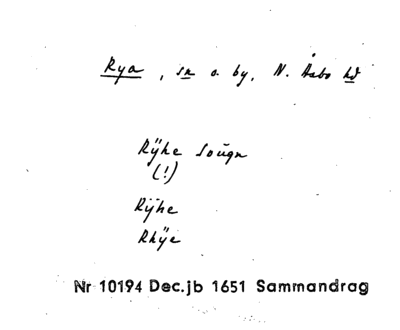 Rya, sn o. by, N. Åsbo hd
Rÿhe Soŭgn
(!)
Rÿhe
Rhÿe
Nr 10194 Dec.jb 1651 Sammandrag